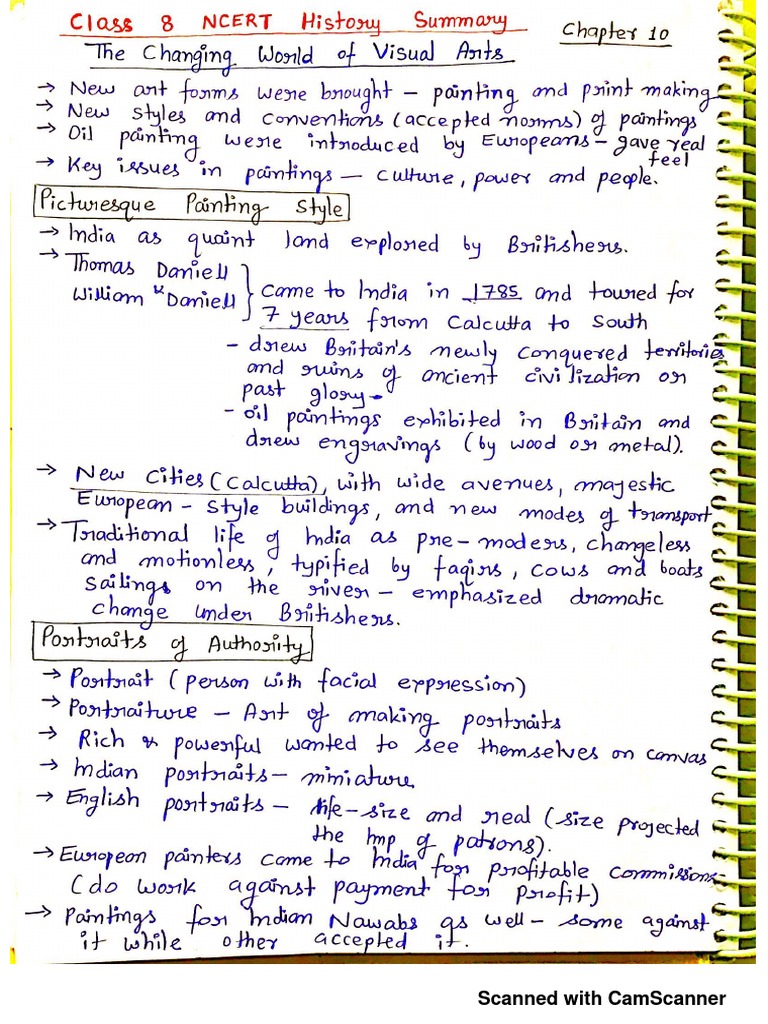 Class 8 NCERT History Summary
Chapter 10
The Changing World of Visual Arts
→ New art forms were brought – painting and print making
→ New styles and conventions (accepted norms) of paintings
→ Oil painting were introduced by Europeans – gave real
feel
→ Key issues in paintings – culture, power and people.
Picturesque Painting Style
→ India as quaint land explored by Britishers.
→ Thomas Daniell
William & Daniell } came to India in 1785 and toured for
7 years from Calcutta to South
- drew Britain's newly conquered territories
and ruins of ancient civilization or
past glory.
- oil paintings exhibited in Britain and
drew engravings (by wood or metal).
→ New Cities (Calcutta), with wide avenues, majestic
European - style buildings, and new modes of transport
→ Traditional life of India as pre-moders, changeless
and motionless, typified by faqirs, cows and boats
sailings on the river – emphasized dramatic
change under Britishers.
Portraits of Authority
→ Portrait (person with facial expression)
→ Portraiture – Art of making portraits
→ Rich & powerful wanted to see themselves on canvas
→ Indian portraits – miniature
→ English portraits – life-size and real (size projected
the imp of patrons).
→ European painters came to India for profitable commissions
(do work against payment for profit)
→ Paintings for Indian Nawabs as well – some against
it while other accepted it.
Scanned with CamScanner